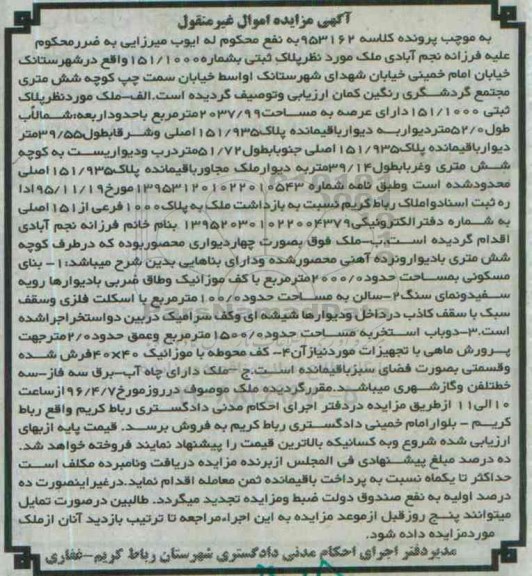 آگهی مزایده اموال غیرمنقول
به موجب پرونده کلاسه ۹۵۳۱۶۲به نفع محکوم له ایوب میرزایی به ضررمحکوم
علیه فرزانه نجم آبادی ملک مورد نظرپلاک ثبتی بشماره۱۵۱/۱۰۰۰۰واقع درشهرستانک
خیابان امام خمینی خیابان شهدای شهرستانک اواسط خیابان سمت چپ کوچه شش متری
مجتمع گردشگری رنگین کمان ارزیابی وتوصیف گردیده است.الف-ملک موردنظرپلاک
ثبتی ۱۵۱/۱۰۰۰دارای عرصه به مساحت۲۰۳۷/۹۹مترمربع باحدوداربعه:شمالأب
طول۵۲/۰متردیواربه دیوارباقیمانده پلاک۱۵۱/۹۳۵ اصلی وشرقابطول۳۹/۵۵متر
دیوارباقیمانده پلاک۱۵۱/۹۳۵اصلی جنوبابطول۵۱/۷۲متردرب ودیواریست به کوچه
شش متری وغربابطول۳۹/۱۴متربه دیوارملک مجاورباقیمانده پلاک۱۵۱/۹۳۵اصلی
محدودشده است وطبق نامه شماره ۱۳۹۵۳۱۲۰۱۰۲۲۰۱۰۵۴۳مورخ۹۵/۱۱/۱۹ادا
ره ثبت اسنادواملاک رباط کریم نسبت به بازداشت ملک به پلاک۱۰۰۰فرعی از۱۵۱اصلی
به شماره دفترالکترونیکی۱۳۹۵۲۰۳۰۱۰۲۲۰۰۴۳۷۹ بنام خانم فرزانه نجم آبادی
اقدام گردیده است.ب-ملک فوق بصورت چهاردیواری محصوربوده که درطرف کوچه
شش متری بادیوارونرده آهنی محصورشده ودارای بناهایی بدین شرح میباشد:۱- بنای
مسکونی بمساحت حدود۲۰۰۰/۰مترمربع با کف موزائیک وطاق ضربی بادیوارها رویه
سفیدونمای سنگ۲-سالن به مساحت حدود۱۰۰/۰مترمربع با اسکلت فلزی وسقف
سبک با سقف کاذب درداخل ودیوارها شیشه ای وکف سرامیک دربین دواستخراجراشده
است.۳-دوباب استخربه مساحت حدود۱۵۰۰/۰مترمربع وعمق حدود۲/۰مترجهت
پرورش ماهی با تجهیزات موردنیازآن۴- کف محوطه با موزائیک ۴۰×۴۰فرش شده
وقسمتی بصورت فضای سبزباقیمانده است.ج- ملک دارای چاه آب-برق سه فاز-سه
خطتلفن وگازشهری میباشد.مقررگردیده ملک موصوف درروزمورخ۹۶/۴/۷ازساعت
۱۰الی۱۱ ازطریق مزایده دردفتر اجرای احکام مدنی دادگستری رباط کریم واقع رباط
کریم - بلوارامام خمینی دادگستری رباط کریم به فروش برسد. قیمت پایه ازبهای
ارزیابی شده شروع وبه کسانیکه بالاترین قیمت را پیشنهاد نمایند فروخته خواهد شد.
ده درصد مبلغ پیشنهادی فی المجلس ازبرنده مزایده دریافت ونامبرده مکلف است
حداکثر تا یکماه نسبت به پرداخت باقیمانده ثمن معامله اقدام نماید.درغیراینصورت ده
درصد اولیه به نفع صندوق دولت ضبط ومزایده تجدید میگردد. طالبین درصورت تمایل
میتوانند پنج روزقبل ازموعد مزایده به این اجراءمراجعه تا ترتیب بازدید آنان ازملک
موردمزایده داده شود.
مدیردفتر اجرای احکام مدنی دادگستری شهرستان رباط کریم-غفاری